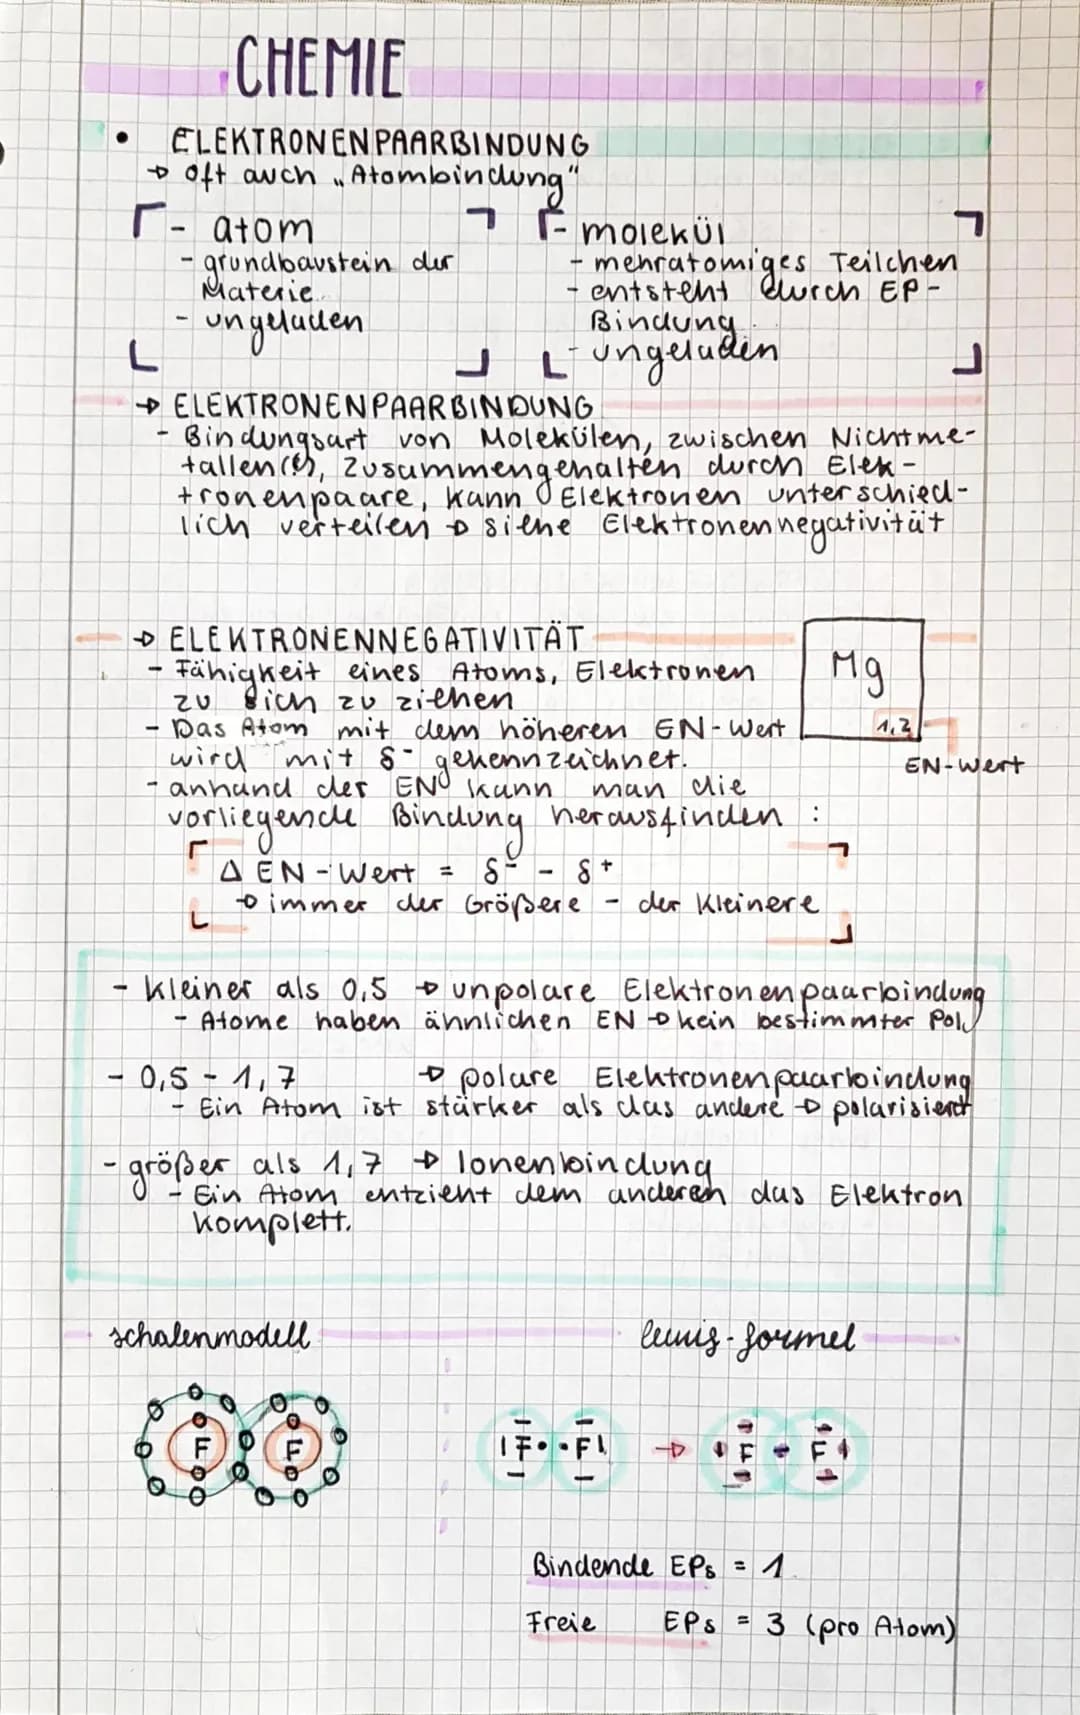 CHEMIE
• ELEKTRONENPAARBINDUNG
→ oft auch „Atombindung"
- atom
- grundbaustein der
Materie
- ungeladen
- molekül
- mehratomiges Teilchen
- entsteht durch EP-
Bindung
- ungeladen
→ ELEKTRONENPAARBINDUNG
- Bindungsart von Molekülen, zwischen Nichtme-
tallen, zusammengehalten durch Elek-
tronenpaare, kann Elektronen unterschied-
lich verteilen → siehe Elektronennegativität
→ ELEKTRONENNEGATIVITÄT
- Fähigkeit eines Atoms, Elektronen
zu sich zu ziehen
- Das Atom mit dem höheren EN-Wert
wird mit δ⁻ gekennzeichnet.
- anhand der EN kann man die
vorliegende Bindung herausfinden :
Mg
1,2
EN-Wert
Δ EN-Wert = δ⁻ - δ⁺
→ immer der Größere - der Kleinere
- kleiner als 0,5 → unpolare Elektronenpaarbindung
- Atome haben ähnlichen EN → kein bestimmter Pol
- 0,5 - 1,7 → polare Elektronenpaarbindung
- Ein Atom ist stärker als das andere → polarisiert
- größer als 1,7 → Ionenbindung
- Ein Atom entzieht dem anderen das Elektron
komplett.
schalenmodell
lewis-formel
F F
F F → F F
Bindende EPs = 1
Freie EPs = 3 (pro Atom)